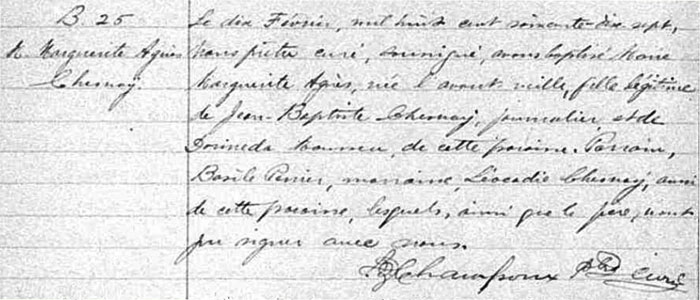 B 25
M. Marguerite Agnès
Chesnay.
Le dix Février, mil huit cent soixante-dix sept,
Nous prêtre curé, soussigné, avons baptisé Marie
Marguerite Agnès, née l'avant veille, fille légitime
de Jean-Baptiste Chesnay, journalier et de
de cette paroisse. Parrain,
Basile Perrier, marraine, Léocadie Chesnay, aussi
de cette paroisse, lesquels, ainsi que le père, n'ont
pu signer avec nous.
Champoux Ptre Curé